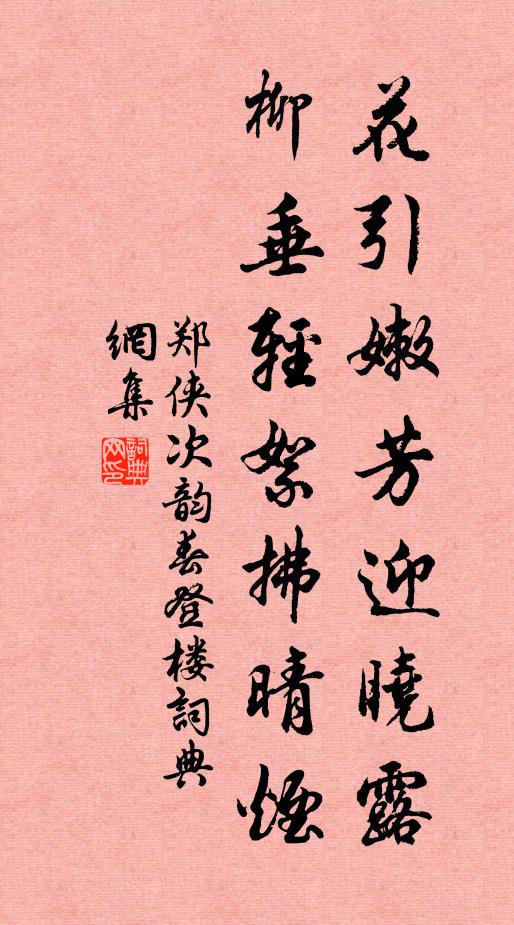 花引嫩芳迎曉露
柳垂輕絮拂晴煙
郑侠次韵春登楼詞典
網集
詞典
网印